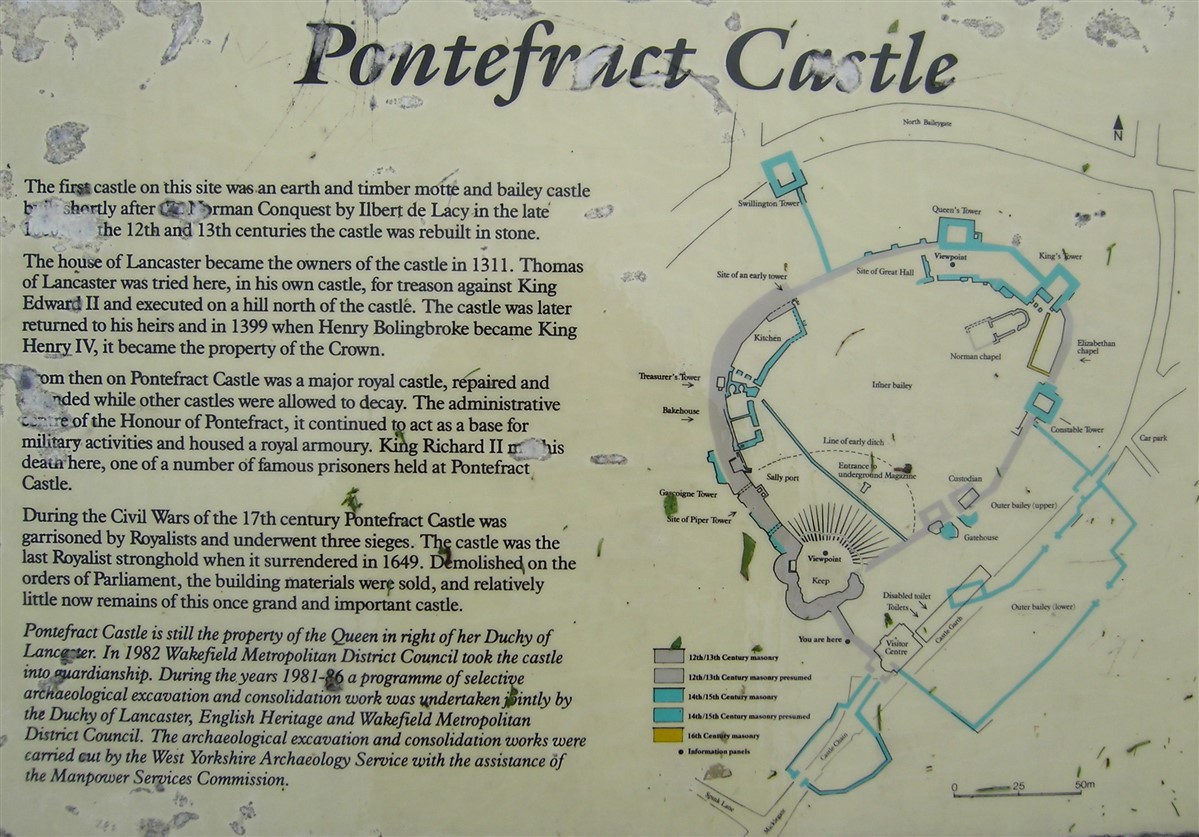 Pontefract Castle
The first castle on this site was an earth and timber motte and bailey castle
shortly after Norman Conquest by Ilbert de Lacy in the late
the 12th and 13th centuries the castle was rebuilt in stone.
The house of Lancaster became the owners of the castle in 1311. Thomas
of Lancaster was tried here, in his own castle, for treason against King
Edward II and executed on a hill north of the castle. The castle was later
returned to his heirs and in 1399 when Henry Bolingbroke became King
Henry IV, it became the property of the Crown.
From then on Pontefract Castle was a major royal castle, repaired and
while other castles were allowed to decay. The administrative
centre of the Honour of Pontefract, it continued to act as a base for
military activities and housed a royal armoury. King Richard II his
death here, one of a number of famous prisoners held at Pontefract
Castle.
During the Civil Wars of the 17th century Pontefract Castle was
garrisoned by Royalists and underwent three sieges. The castle was the
last Royalist stronghold when it surrendered in 1649. Demolished on the
orders of Parliament, the building materials were sold, and relatively
little now remains of this once grand and important castle.
Pontefract Castle is still the property of the Queen in right of her Duchy of
Lancaster. In 1982 Wakefield Metropolitan District Council took the castle
into guardianship. During the years 1981-86 a programme of selective
archaeological excavation and consolidation work was undertaken jointly by
the Duchy of Lancaster, English Heritage and Wakefield Metropolitan
District Council. The archaeological excavation and consolidation works were
carried out by the West Yorkshire Archaeology Service with the assistance of
the Manpower Services Commission.
North Baileygate
N
Swillington Tower
Queen's Tower
Viewpoint
King's Tower
Site of Great Hall
Site of an early tower
Kitchen
Norman chapel
Elizabethan
chapel
Treasurer's Tower
Inner bailey
Bakehouse
Constable Tower
Car park
Line of early ditch
Entrance to
underground Magazine
Sally port
Custodian
Gascoigne Tower
Outer bailey (upper)
Site of Piper Tower
Gatehouse
Viewpoint
Keep
Disabled toilet
Toilets
Outer bailey (lower)
Castle Garth
You are here
Visitor
Centre
12th/13th Century masonry
12th/13th Century masonry presumed
14th/15th Century masonry
14th/15th Century masonry presumed
16th Century masonry
Information panels
Castle Chain
Spink Lane
Micklegate
0 25 50m